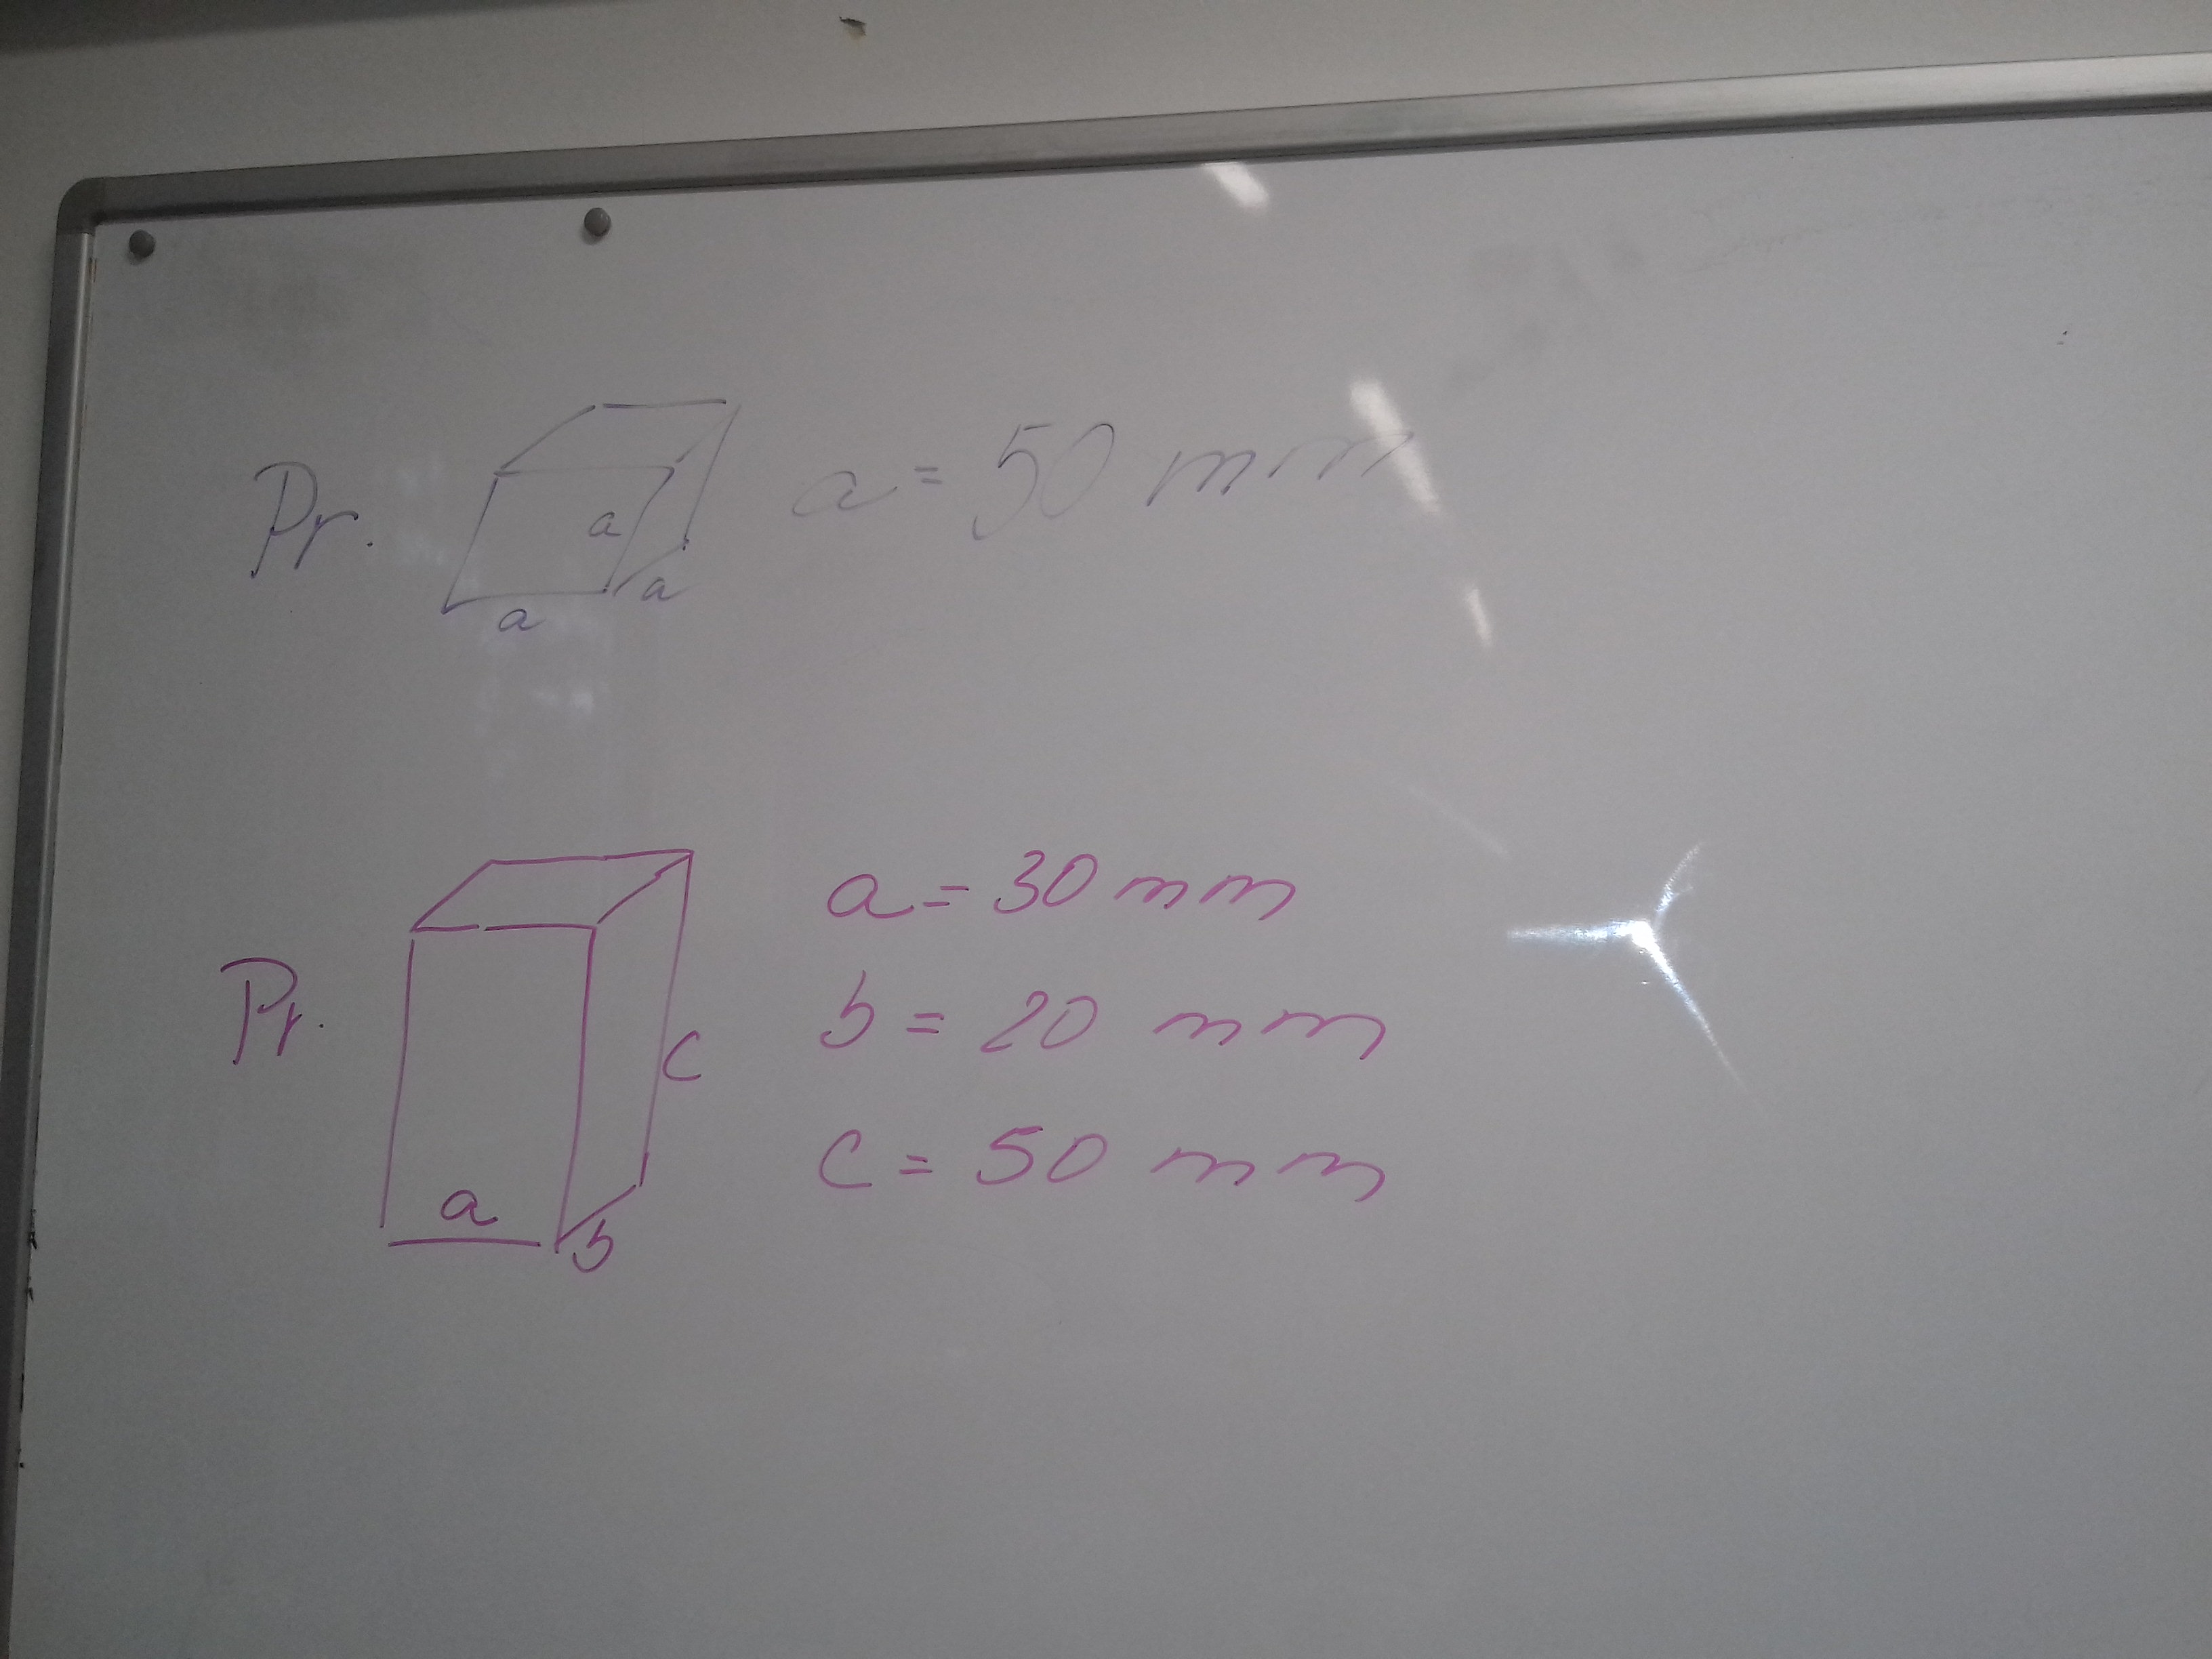 Pr. a a a a = 50 mm
a = 30 mm
Pr. c b = 20 mm
c = 50 mm
a b